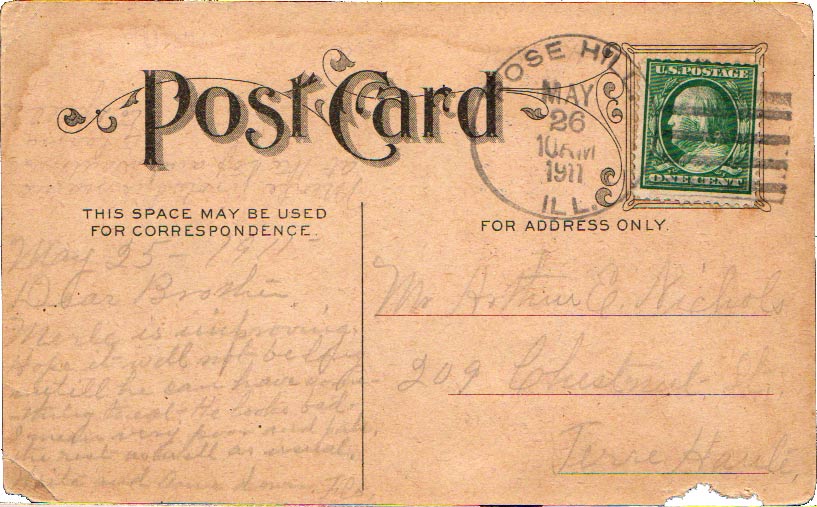 Post Card
ROSE HILL
MAY
26
10 AM
1911
ILL.
U.S. POSTAGE
ONE CENT
THIS SPACE MAY BE USED
FOR CORRESPONDENCE.
FOR ADDRESS ONLY.
May 25 - 1911 -
Dear Brother,
Merle is improving.
Hope it will not be long
untill he can have some-
thing to eat. He looks bad.
I mean very poor and pale.
The rest as well as usual.
Write and
Mr Arthur C. Nichols
209 Chestnut St.
Terre Haute,